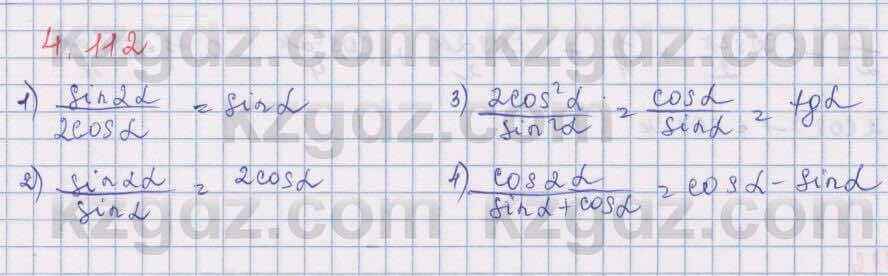 4.112
1) sin2α / 2cosα = sinα
2) sin2α / sinα = 2cosα
3) 2cos²α / sin²α = cosα / sinα = tgα
4) cos2α / sinα + cosα = cosα - sinα
kzgdz.com kzgdz.com
kzgdz.com
kzgdz.com
kzgdz.com kzgdz.com